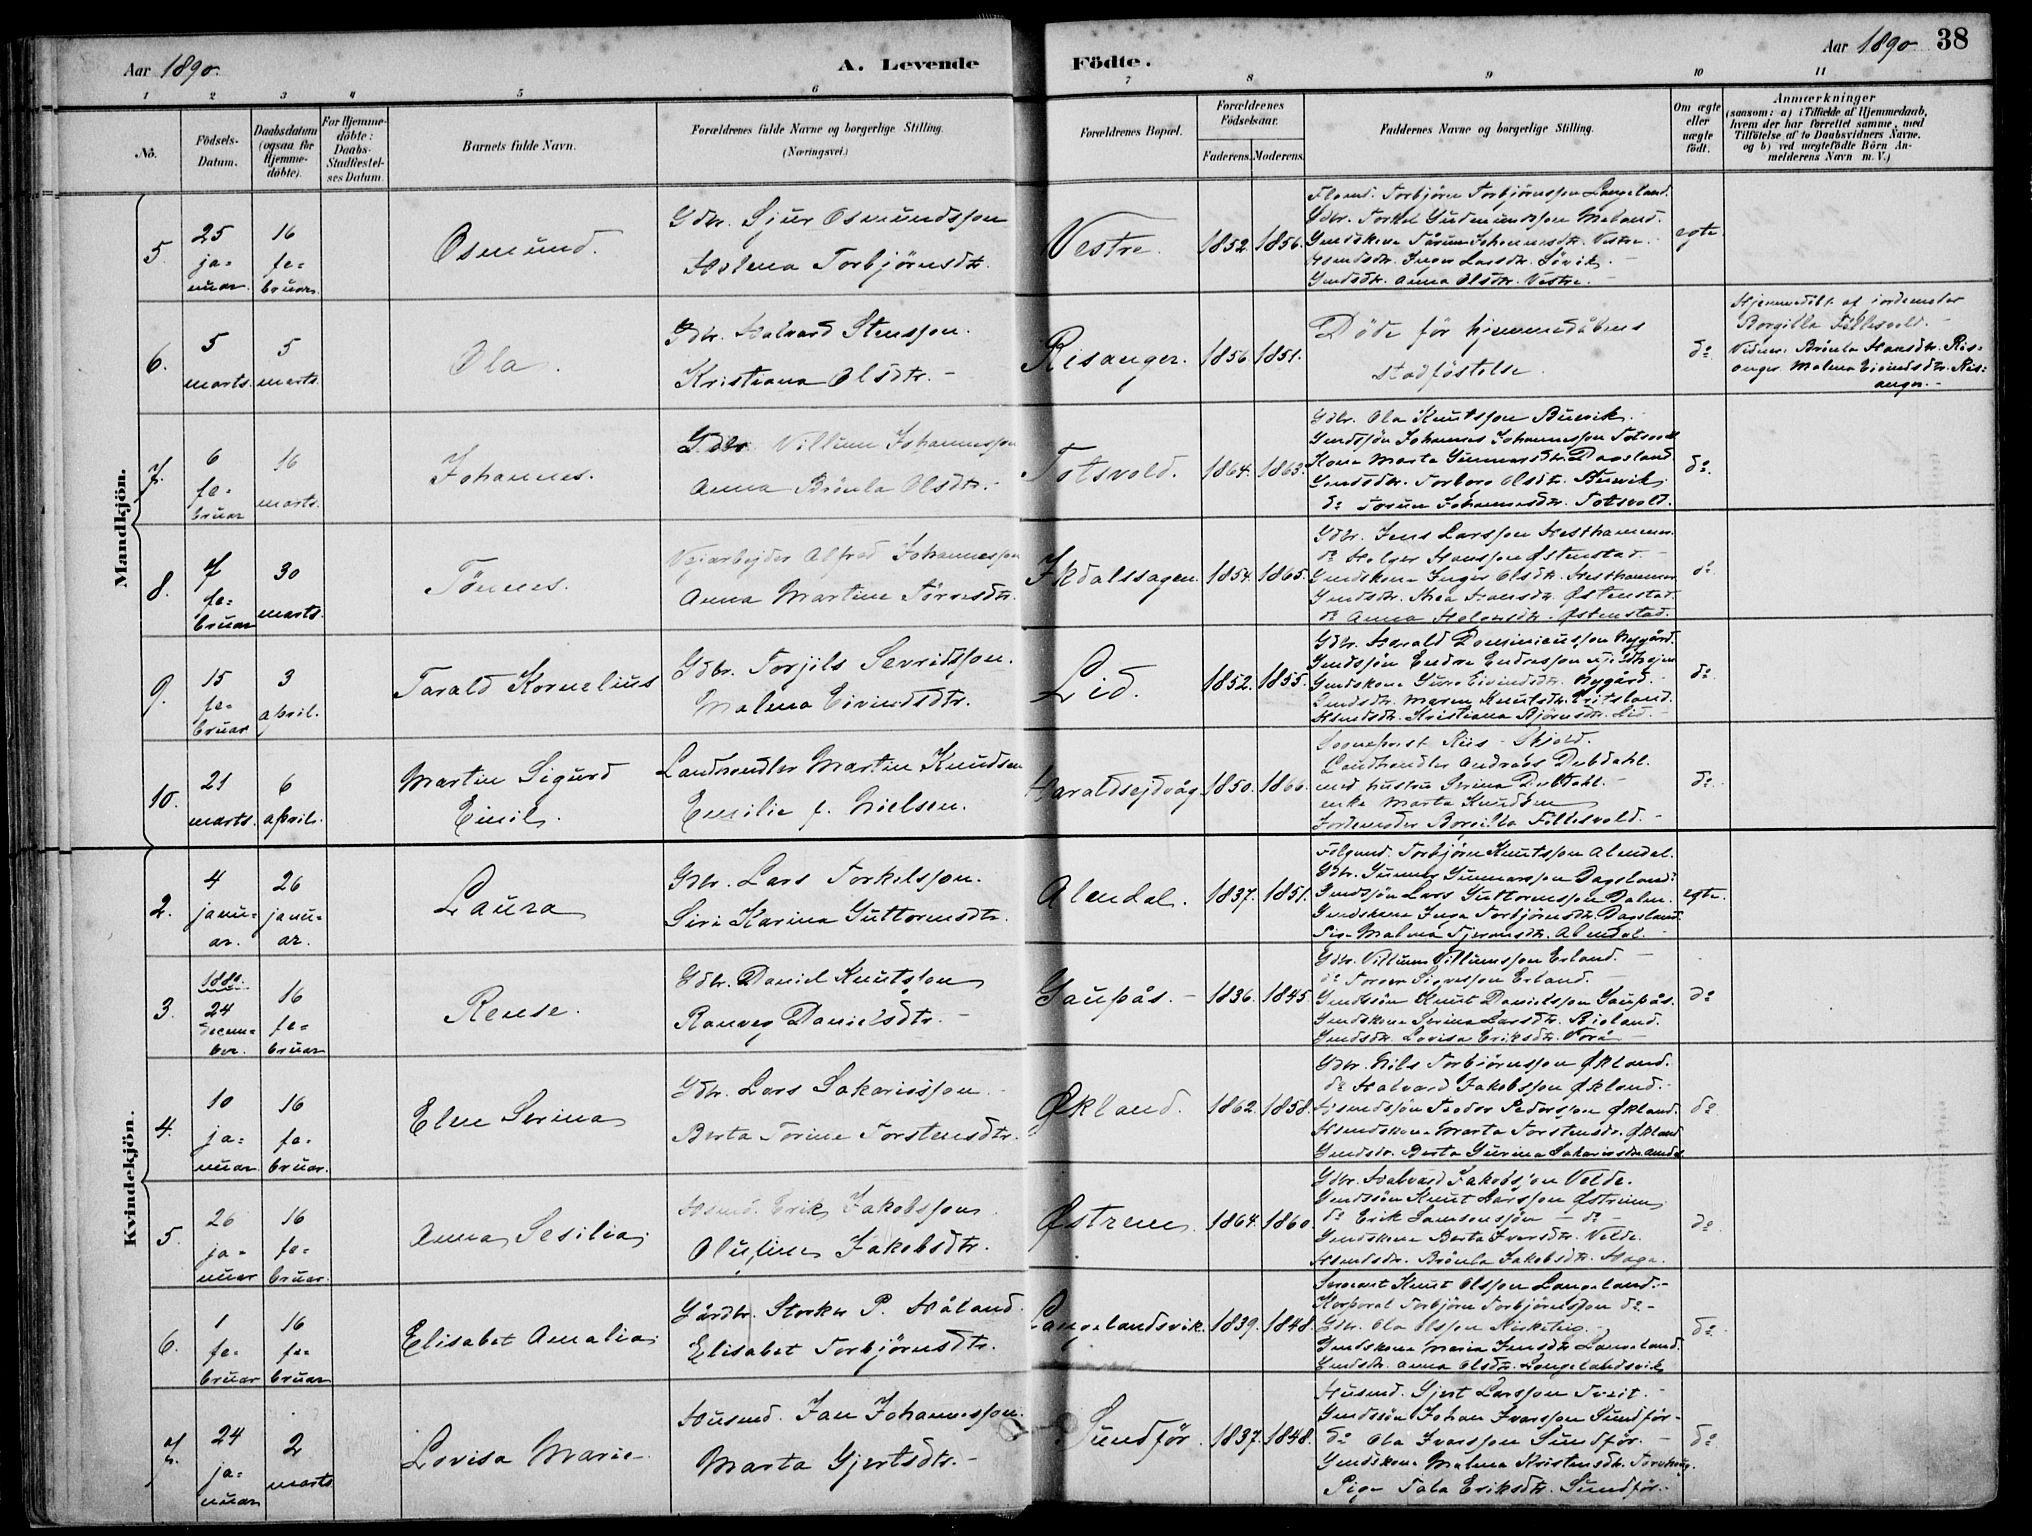 Aar 1890. A. Levende Födte. Aar 1890 38
1 2 3 4 5 6 7 8 9 10 11
No.
Födsels-Datum.
Daabsdatum (ogsaa for Hjemme-döbte).
For Hjemme-döbte: Daabs-Stadfæstel-ses Datum.
Barnets fulde Navn.
Forældrenes fulde Navne og borgerlige Stilling.
(Næringsvei.)
Forældrenes Bopæl.
Forældrenes Födselsaar.
Faderens. Moderens.
Faddernes Navne og borgerlige Stilling.
Om ægte eller uægte födt.
Anmærkninger
(saasom: a) i Tilfælde af Hjemmedaab, hvem der har forrettet samme, med Tilföielse af to Daabsvidners Navne, og b) ved uægtefödte Börn An-melderens Navn m. V.)
Mandkjön.
5. 25 ja-nuar. 16 fe-bruar. Osmund.
Gdbr. Sjur Osmundsson
Malena Torbjörnsdtr.
Vestre. 1852. 1856.
Torbjörn Torbjörnsson Langeland.
Gdbr. Torkel Gudmundsson Meland.
Gmdskone Johannesdtr. Vestre.
Larsdtr.
Gmdsdtr. Anna Olsdtr. Vestre.
egte.
6. 5 marts. 5 marts. Ola.
Gdbr. Halvard Stensson.
Kristiana Olsdtr.
Risanger. 1856. 1851.
Döde för hjemmedåbens
stadföstelse.
do
Hjemmedöbt af jordemoder
Borgilla Fellesvold.
Vidner. Brönla Hansdtr. Ris-
anger. Malena Eivindsdtr. Ris-
anger.
7. 6 fe-bruar 16 marts. Johannes.
Gdbr. Villum Johannesson
Anna Brönla Olsdtr.
Totsvold. 1864. 1863.
Gdbr. Ola Knutsson Buevik.
Gmdssön Johannes Johannesson Totsvold
Kone Marta Gunnarsdtr. Dagsland
Gmdsdtr. Torboro Olsdtr. Buevik,
do Johannesdtr. Totsvold.
do.
8. 7 fe-bruar 30 marts. Tönnes.
Vejarbejder Alfred Johannesson
Anna Martine Tönnesdtr.
1854. 1865.
Gdbr. Jens Larsson Hesthammer.
do Holger Hansson Østenstad.
Gmdskone Inger Olsdtr. Hesthammer
Gmdsdtr. Thea Hansdtr. Østenstad.
do Anna Østenstad.
do.
9. 15 fe-bruar 3 april. Tarald Kornelius
Gdbr. Torjils Sevridsson.
Malena Eivindsdtr.
Lid. 1852. 1855.
Gdbr. Harald Nygård.
Gmdssön Endre Endresson
Gmdskone Eivindsdtr. Nygård.
Gmdsdtr. Maren Knutsdtr.
Kristiana Björnsdtr. Lid.
do.
10. 21 marts. 6 april. Martin Sigurd Emil.
Landhandler Martin Knudsen
Emilie f. Nielsen.
Haraldsejdvåg. 1850. 1866.
Sogneprest Riis - Skjold.
Landhandler Andreas Dybdahl.
med hustru Serina Dybdahl.
enke Marta Knudsen
Jordemoder Borgilla Fellesvold.
do.
Kvindekjön.
2. 4 janu-ar. 26 janu-ar. Laura
Gdbr. Lars Torkelsson.
Siri Karina Guttormsdtr.
Alendal. 1837. 1851.
Torbjörn Knutsson Alendal.
Gdbr. Gunnar Gunnarsson Dagsland.
Gmdssön Lars Guttormsson Dalen.
Gmdskone Inga Torbjörnsdtr. Dagsland.
Pige Malena Alendal.
egte.
3. 1889. 24 decem-ber. 16 fe-bruar Rense.
Gdbr. Daniel Knutsson
Ranveg Danielsdtr.
Gaupås. 1836. 1845.
Gdbr. Villum Villumsson Erland.
do Sigvesson Erland.
Gmdssön Knut Danielsson Gaupås.
Gmdskone Serina Larsdtr.
Gmdsdtr. Lovisa Eriksdtr.
do
4. 10 ja-nuar 16 fe-bruar. Elen Serina
Gdbr. Lars Sakariasson.
Berta Torine Torstensdtr.
Økland. 1862. 1858.
Gdbr. Nils Torbjörnsson Økland.
do Halvard Jakobsson Økland.
Teodor Pedersson Økland.
Marta Torstensdtr. Økland
Gmdsdtr. Berta Gurina Sakariasdtr.
do
5. 26 ja-nuar 16 fe-bruar. Anna Sesilia.
Husmd. Erik Jakobsson
Olufine Jakobsdtr.
Østrem. 1864. 1860.
Gdbr. Halvard Jakobsson Velde.
Gmdssön Knut Larsson Østrem
do Erik Samsonsson - do -
Gmdskone Berta Ivarsdtr. Velde.
Brönla Jakobsdtr. Haga.
do
6. 1 fe-bruar 16 fe-bruar Elisabet Amalia.
Gårdbr. Storker P. Håland.
Elisabet Torbjörnsdtr.
Langelandsvik. 1839. 1848.
Sersjant Knut Olsson Langeland.
Korporal Torbjörn Torbjörnsson do
Gdbr. Ola Olsson
Gmdskone Maria Jensdtr. Langeland.
Gmdsdtr. Anna Olsdtr. Langelandsvik
do.
7. 24 ja-nuar 2 marts Lovisa Marie
Husmd. Jan Johannesson.
Marta Gjertsdtr.
Sundför. 1837. 1848.
Husmd. Gjert Larsson Tveit.
Gmdssön Johan Ivarsson Sundför.
do Ola Ivarsson Sundför.
Gmdskone Malena Kristensdtr.
Pige Tala Eriksdtr. Sundför.
do